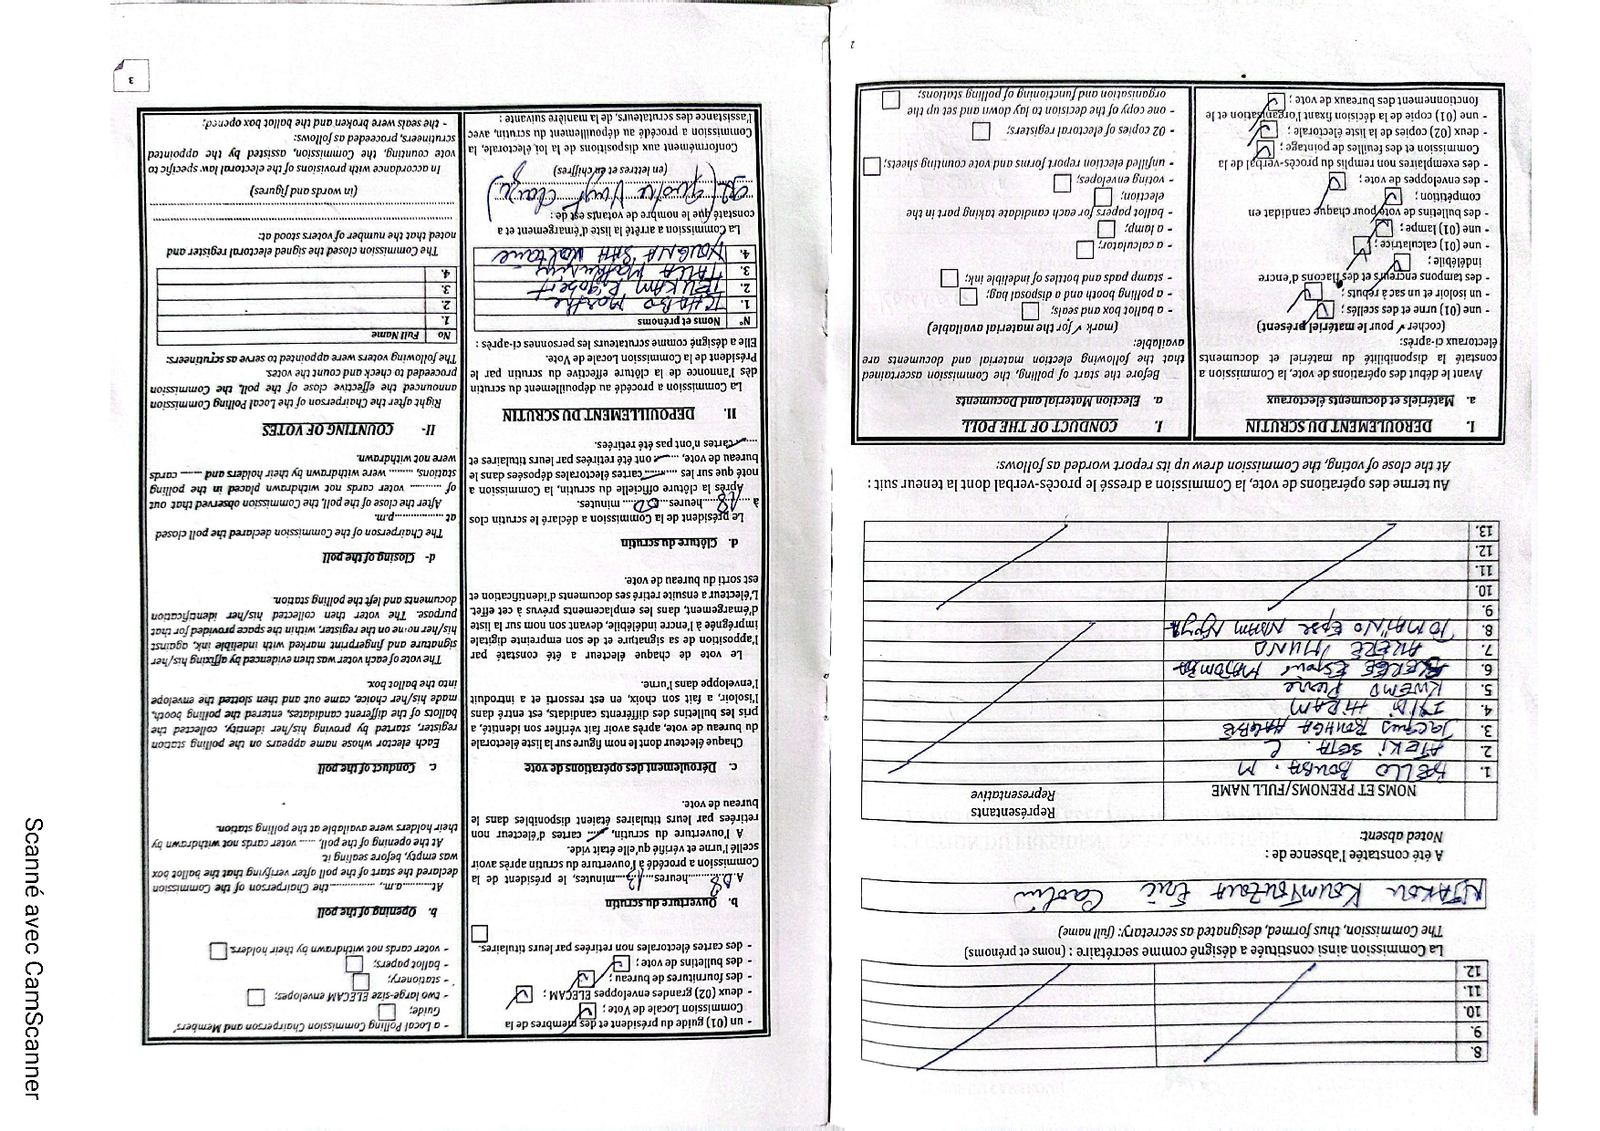 8.
9.
10.
11.
12.
La Commission ainsi constituée a désigné comme secrétaire : (noms et prénoms)
The Commission, thus formed, designated as secretary: (full name)
Eric
A été constatée l'absence de :
Noted absent:
NOMS ET PRENOMS/FULL NAME
Représentants
Representative
1. BELLO BOUBA. M
2. ATEKI SETA. C
3. Jacques BOUHGA HAGBE
4. HIRAM
5. KWEMO Pierre
6. Espoir MATOMBA
7. AKERE MUNA
8. TOMAÏNO Epse NDAM Njoya
9.
10.
11.
12.
13.
Au terme des opérations de vote, la Commission a dressé le procès-verbal dont la teneur suit :
At the close of voting, the Commission drew up its report worded as follows:
I. DEROULEMENT DU SCRUTIN
a. Matériels et documents électoraux
Avant le début des opérations de vote, la Commission a
constaté la disponibilité du matériel et documents
électoraux ci-après:
(cocher ✓ pour le matériel présent)
- une (01) urne et des scellés ;
- un isoloir et un sac à rebuts ;
- des tampons encreurs et des flacons d'encre
indélébile ;
- une (01) calculatrice ;
- une (01) lampe ;
- des bulletins de vote pour chaque candidat en
compétition ;
- des enveloppes de vote ;
- des exemplaires non remplis du procès-verbal de la
Commission et des feuilles de pointage ;
- deux (02) copies de la liste électorale ;
- une (01) copie de la décision fixant l'organisation et le
fonctionnement des bureaux de vote ;
I. CONDUCT OF THE POLL
a. Election Material and Documents
Before the start of polling, the Commission ascertained
that the following election material and documents are
available:
(mark ✓ for the material available)
- a ballot box and seals;
- a polling booth and a disposal bag;
- stamp pads and bottles of indelible ink;
- a calculator;
- a lamp;
- ballot papers for each candidate taking part in the
election;
- voting envelopes;
- unfilled election report forms and vote counting sheets;
- 02 copies of electoral registers;
- one copy of the decision to lay down and set up the
organisation and functioning of polling stations;
2
- un (01) guide du président et des membres de la
Commission Locale de Vote ;
- deux (02) grandes enveloppes ELECAM ;
- des fournitures de bureau ;
- des bulletins de vote ;
- des cartes électorales non retirées par leurs titulaires.
b. Ouverture du scrutin
A 08 heures 13 minutes, le président de la
Commission a procédé à l'ouverture du scrutin après avoir
scellé l'urne et vérifié qu'elle était vide.
A l'ouverture du scrutin, ..... cartes d'électeur non
retirées par leurs titulaires étaient disponibles dans le
bureau de vote.
c. Déroulement des opérations de vote
Chaque électeur dont le nom figure sur la liste électorale
du bureau de vote, après avoir fait vérifier son identité, a
pris les bulletins des différents candidats, est entré dans
l'isoloir, a fait son choix, en est ressorti et a introduit
l'enveloppe dans l'urne.
Le vote de chaque électeur a été constaté par
l'apposition de sa signature et de son empreinte digitale
imprégnée à l'encre indélébile, devant son nom sur la liste
d'émargement, dans les emplacements prévus à cet effet.
L'électeur a ensuite retiré ses documents d'identification et
est sorti du bureau de vote.
d. Clôture du scrutin
Le président de la Commission a déclaré le scrutin clos
à 18 heures 00 minutes.
Après la clôture officielle du scrutin, la Commission a
noté que sur les ..... cartes électorales déposées dans le
bureau de vote, ..... ont été retirées par leurs titulaires et
..... cartes n'ont pas été retirées.
II. DEPOUILLEMENT DU SCRUTIN
La Commission a procédé au dépouillement du scrutin
dès l'annonce de la clôture effective du scrutin par le
Président de la Commission Locale de Vote.
Elle a désigné comme scrutateurs les personnes ci-après :
N° Noms et prénoms
1. TCHABO Marthe
2. TEUKAM Rigobert
3. TALLA Mathurin
4.
La Commission a arrêté la liste d'émargement et a
constaté que le nombre de votants est de :
92 (Quatre Vingt Douze)
(en lettres et en chiffres)
Conformément aux dispositions de la loi électorale, la
Commission a procédé au dépouillement du scrutin, avec
l'assistance des scrutateurs, de la manière suivante :
- a Local Polling Commission Chairperson and Members'
Guide;
- two large-size ELECAM envelopes;
- stationery;
- ballot papers;
- voter cards not withdrawn by their holders.
b. Opening of the poll
At..........a.m., ..........the Chairperson of the Commission
declared the start of the poll after verifying that the ballot box
was empty, before sealing it.
At the opening of the poll, ..... voter cards not withdrawn by
their holders were available at the polling station.
c. Conduct of the poll
Each elector whose name appears on the polling station
register, started by proving his/her identity, collected the
ballots of the different candidates, entered the polling booth,
made his/her choice, came out and then slotted the envelope
into the ballot box.
The vote of each voter was then evidenced by affixing his/her
signature and fingerprint marked with indelible ink, against
his/her name on the register, within the space provided for that
purpose. The voter then collected his/her identification
documents and left the polling station.
d- Closing of the poll
The Chairperson of the Commission declared the poll closed
at ....................p.m.
After the close of the poll, the Commission observed that out
of .......... voter cards not withdrawn placed in the polling
stations, ........ were withdrawn by their holders and ....... cards
were not withdrawn.
II- COUNTING OF VOTES
Right after the Chairperson of the Local Polling Commission
announced the effective close of the poll, the Commission
proceeded to check and count the votes.
The following voters were appointed to serve as scrutineers:
No Full Name
1.
2.
3.
4.
The Commission closed the signed electoral register and
noted that the number of voters stood at:
(in words and figures)
In accordance with provisions of the electoral law specific to
vote counting, the Commission, assisted by the appointed
scrutineers, proceeded as follows:
- the seals were broken and the ballot box opened;
3
Scanné avec CamScanner